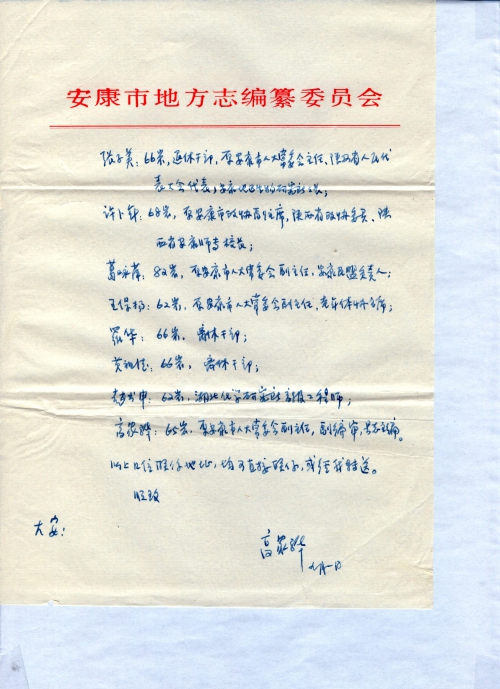 安康市地方志编纂委员会
张子美：66岁，退休干部，原安康市人大常委会主任、陕西省人民代
表大会代表，安康
许卜年：68岁，原安康市政协副主席，陕西省政协委员、陕
西省安康师专校长；
葛咏萍：82岁，原安康市人大常委会副主任、安康民盟负责人；
王保郑：62岁，原安康市人大常委会副主任，老年体协主席；
罗华：66岁，离休干部；
黄祖德：66岁，离休干部；
申：62岁，湖北化学研究所高级工程师；
高家骅：65岁，原安康市人大常委会副主任，副编审，县志主编。
以上几位联系地址，均可直接联系，或经我转送。
顺致
大安！
高家骅